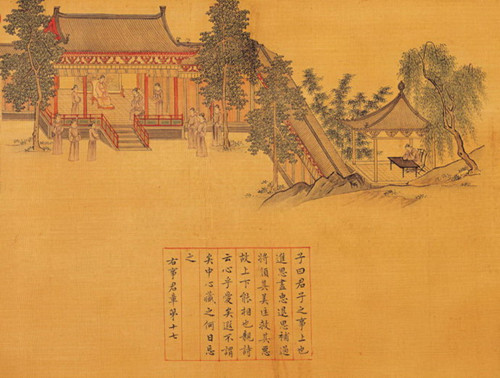 子曰君子之事上也
進思盡忠退思補過
將順其美匡救其惡
故上下能相也親詩
云心乎愛矣遐不謂
矣中心藏之何日忘
之
右事君章第十七